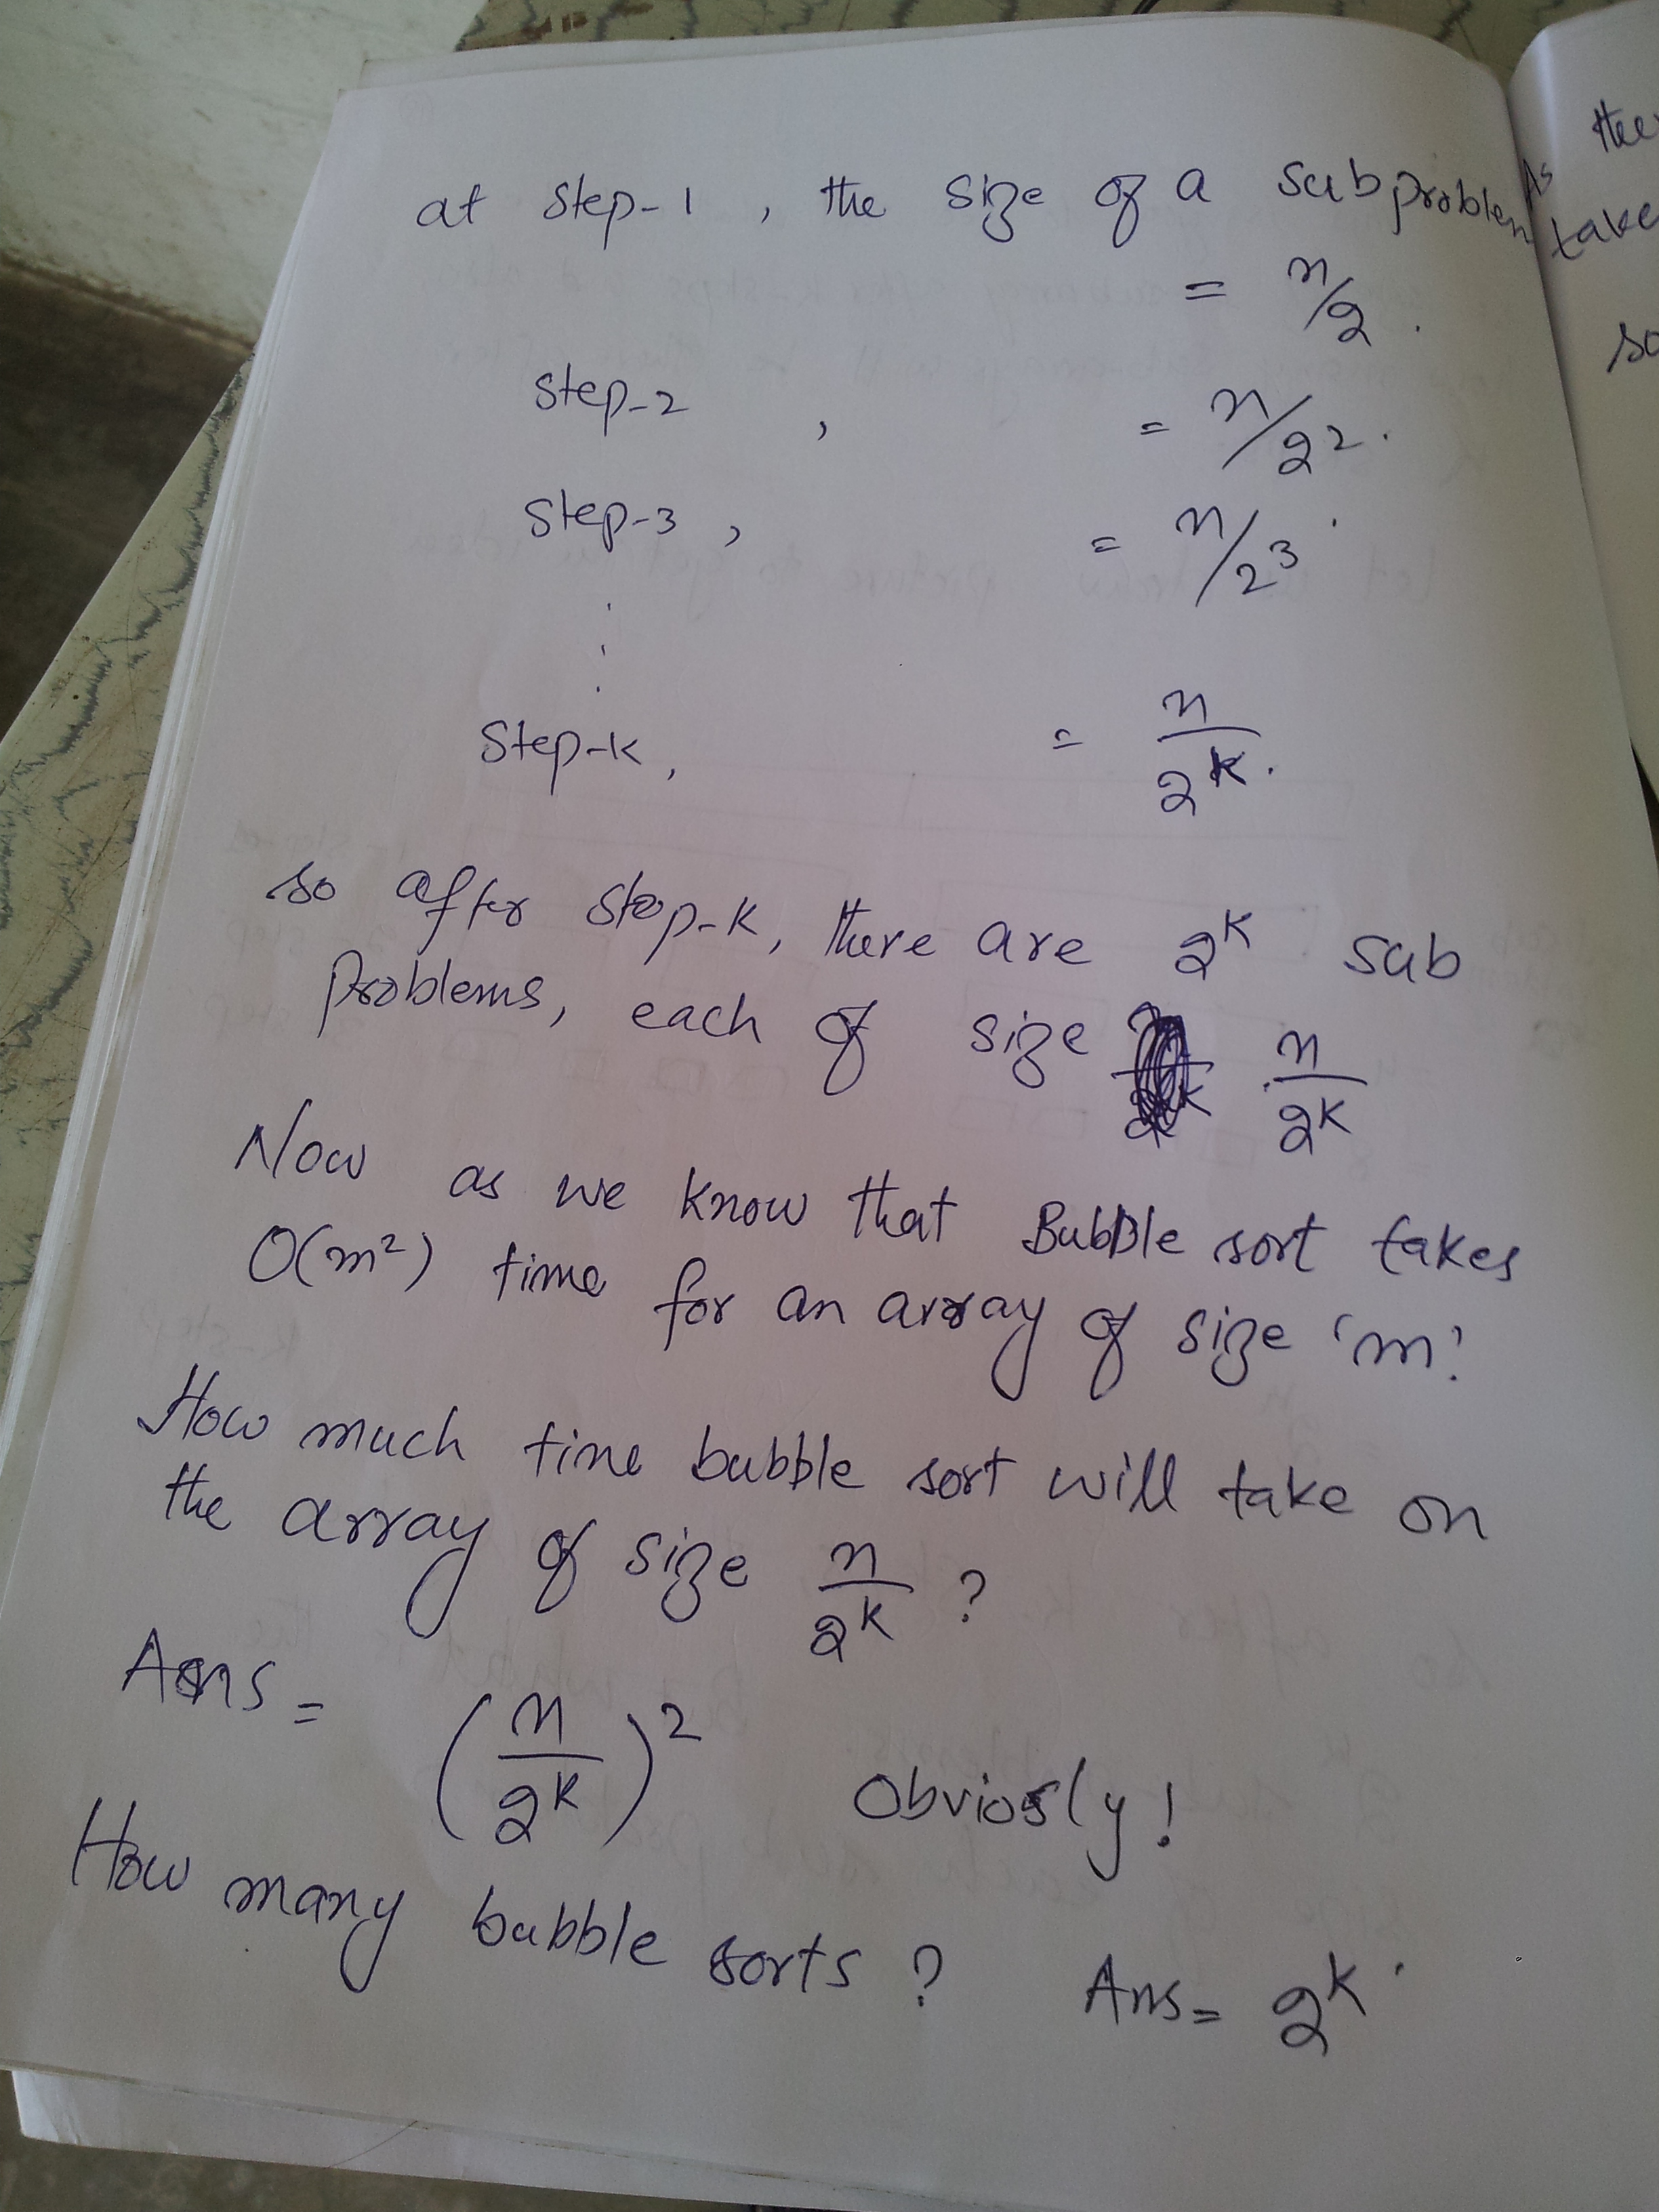 at step-1, the size of a subproblem
= n/2.
step-2, = n/2².
step-3, = n/2³.
⋮
step-k, = n/2ᵏ.
so after step-k, there are 2ᵏ sub
problems, each of size n/2ᵏ
Now as we know that Bubble sort takes
O(m²) time for an array of size 'm'.
How much time bubble sort will take on
the array of size n/2ᵏ?
Ans = (n/2ᵏ)² Obviosly!
How many bubble sorts? Ans = 2ᵏ.
the
take
so